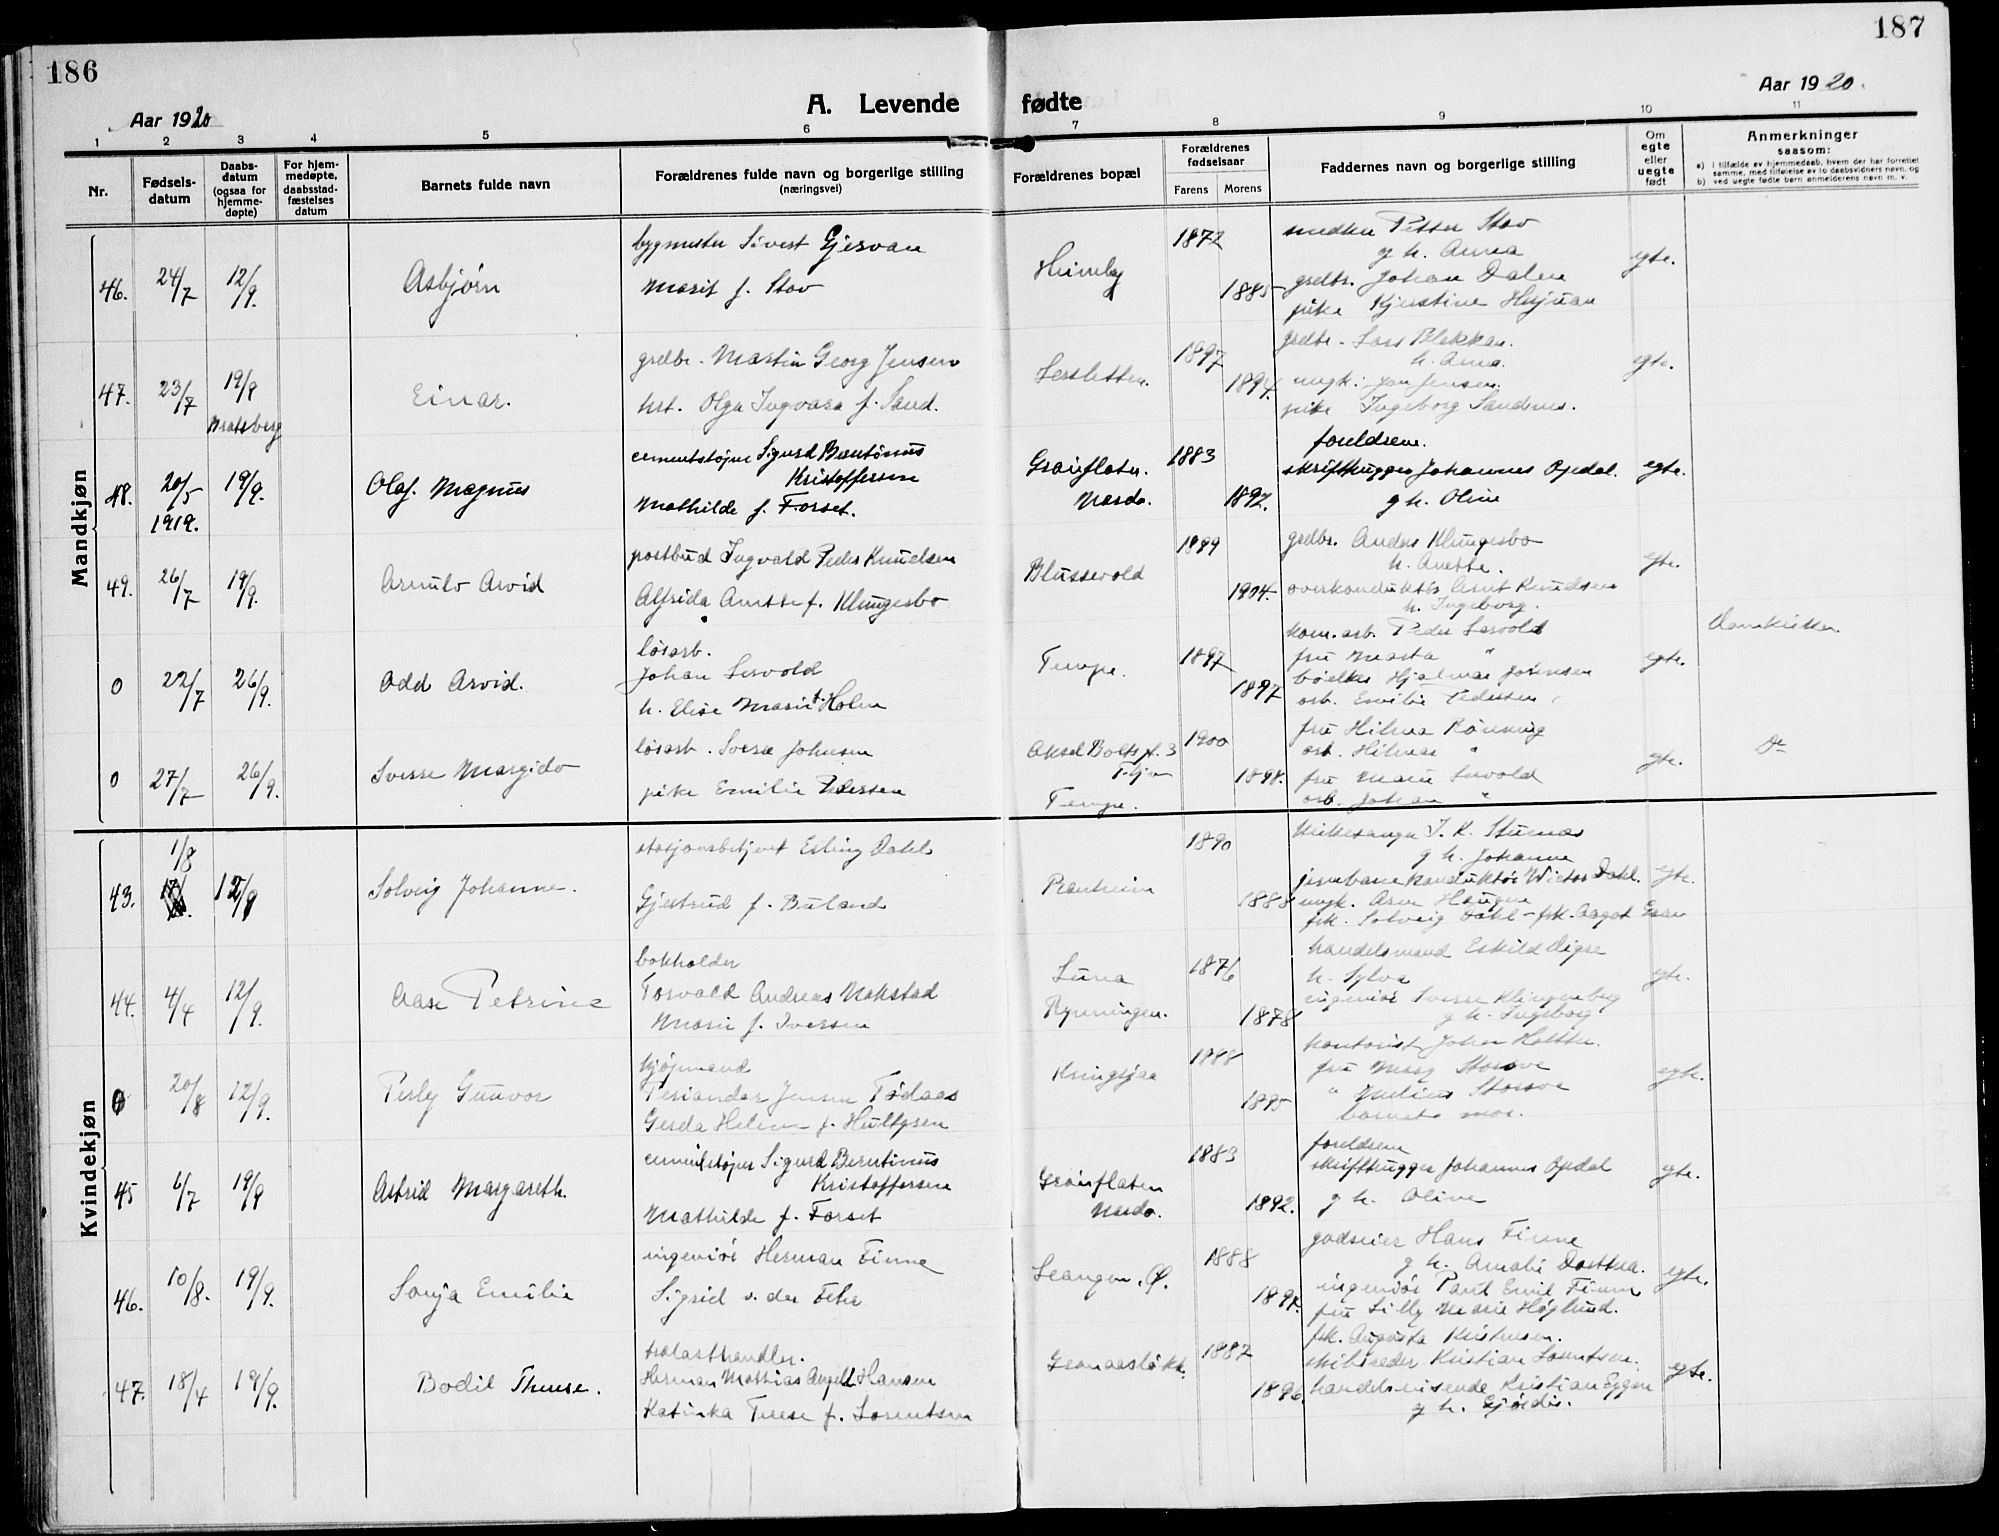 186
187
Aar 1920
A. Levende fødte
Aar 1920.
1 2 3 4 5 6 7 8 9 10 11
Nr.
Fødsels-
datum
Daabs-
datum
(ogsaa for
hjemme-
døpte)
For hjem-
medøpte,
daabsstad-
fæstelses
datum
Barnets fulde navn
Forældrenes fulde navn og borgerlige stilling
(næringsvei)
Forældrenes bopæl
Forældrenes
fødselsaar
Farens Morens
Faddernes navn og borgerlige stilling
Om
egte
eller
uegte
født
Anmerkninger
saasom:
a) i tilfælde av hjemmedaab, hvem der har forrettet
samme, med tilføielse av to daabsvidners navn, og
b) ved uegte fødte barn anmelderens navn m. v.
Mandkjøn
46. 24/7 12/9. Asbjørn
bygmester Sivert Gjersvan
Marit f. Stav
Heimly
1872
1885
Petter Stav
g h. Anna
grdbr. Johan Dalen
pike Kjerstine
egte.
47. 23/7 19/8
Bratsberg
Einar.
grdbr. Martin Georg Jensen
hst. Olga Ingvara f. Sand.
1897
1894.
grdbr. Lars Blekkan.
h. Anna.
ungk. Jon Jensen.
pike Ingeborg Sandnes.
egte.
48. 20/5
1919.
19/9.
Olaf Magnus
cementstøper Sigurd Berntinus
Kristoffersen
Mathilde f. Forset.
Grønflaten.
Nardo.
1883
1892.
foreldrene.
skrifthugger Johannes Opdal.
g h. Oline
egte.
49. 26/7 19/9.
Arnulv Arvid
postbud Ingvald Peder Knudsen
Alfrida Anette f. Klungesbo
Blussevold
1899
1904.
grdbr. Anders Klungesbo
h. Anette.
overkonduktør Arnt Knudsen
h. Ingeborg.
egte.
0 22/7 26/9.
Odd Arvid.
løsarb.
Johan Servold
h. Elise Marie f. Holm
Tempe.
1897
1897
kom. arb. Peder Servold
fru Marta "
Hjalmar Johnsen
arb. Emilie Pedersen
egte.
Domkirken
0 27/7 26/9.
Sverre Margido
løsarb. Sverre Johnsen
pike Emilie Pedersen
Aksel 3
Tempe.
1900
1898.
fru Hilma Rönning
arb. Hilmar "
fru Marie Servold
arb. Johan "
egte.
Do
Kvindekjøn
43. 1/8 12/9
Solveig Johanne.
stasjonsbetjent Erling Dahl
Gjertrud f. Buland
Ranheim
1890
1888
kirkesanger J. K. Stuenæs
g h. Johanne
jernbanekonduktør Victor Dahl.
ungk. Arne Haugen
frk. Solveig Dahl - frk. Aagot
egte.
44. 4/4 12/9.
Aase Petrine
bokholder
Torvald Andreas Mokstad
Marie f. Iversen
Luna
Rønningen.
1876
1878
handelsmand Eskild Digre
h. Sylva
ingeniør Sverre Klingenberg
g h. Ingeborg
egte.
0 20/8 12/9.
Perly Gunvor
kjøpmand
Periander Jensen Tødaas
Gerda Helene f. Hultgren
Kringsjaa
1888
1895
kontorist Johan
fru Marg Storøve
" Storøve
barnets mor.
egte.
45 6/7 19/9
Astrid Margareth.
cementstøper Sigurd Berntinus
Kristoffersen
Mathilde f. Forset
Grønflaten
Nardo.
1883
1892.
foreldrene
skrifthugger Johannes Opdal
g h. Oline
egte.
46. 10/8. 19/9.
Sonja Emilie
ingeniør Herman Finne
Sigrid v. der Fehr
Leangen. Ø.
1888
1894.
godseier Hans Finne
g h. Amalie
ingeniør Paul Emil Finne
fru Lilly Marie Høglund.
egte.
47. 18/4 19/9.
Bodil Therese.
trælasthandler.
Herman Mathias Angell Hansen
Katinka Terese f. Lorentsen
1887
1896.
frk. Augusta Kristensen.
skibsreder Kristian Lorentsen.
handelsreisende Kristian Eggen
g h. Hjørdis.
egte.